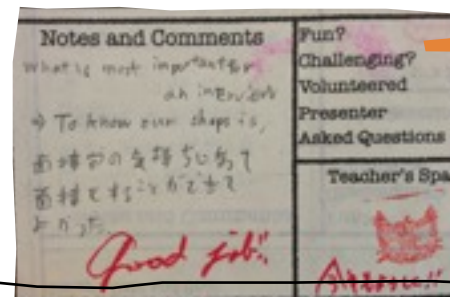 Notes and Comments
What is most important for
an interview
→ To know our shops is,
面接官の気持ちになって
面接をすることができて
よかった。
Good job!!
Fun?
Challenging?
Volunteered
Presenter
Asked Questions
Teacher's Spa